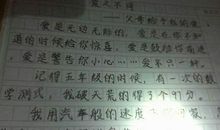 爱之不同
——父母给予的爱
爱是无边无际的,爱是在你不知
道的时候给你惊喜,爱是鼓励你前进
,爱是警告你小心……爱不只一种。
记得五年级的时候,有一次的数
学测试,我破天荒的得了个91分。
我用汽车般的速度